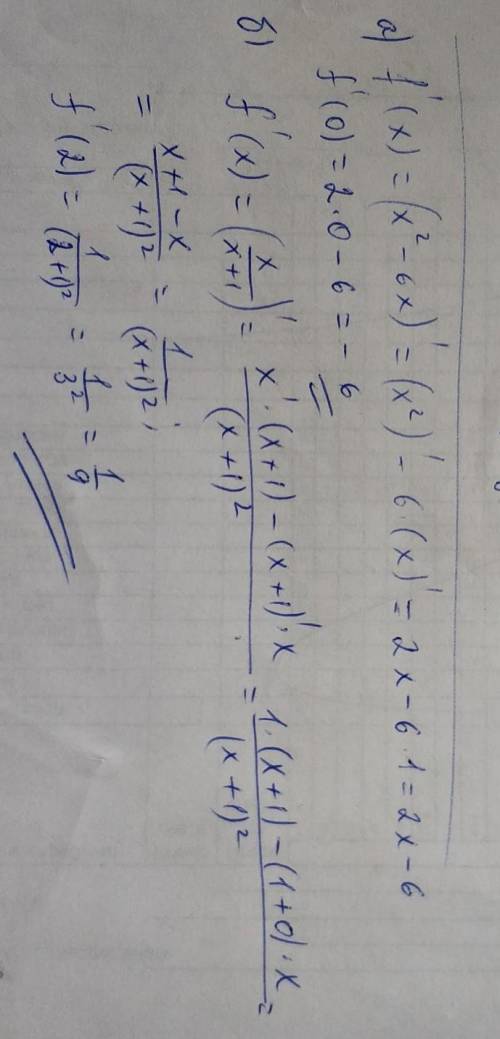 а) f'(x) = (x² - 6x)' = (x²)' - 6·(x)' = 2x - 6·1 = 2x - 6
f'(0) = 2·0 - 6 = -6
б) f'(x) = (x/(x+1))' = (x'·(x+1) - (x+1)'·x)/(x+1)² = (1·(x+1) - (1+0)·x)/(x+1)² =
= (x+1-x)/(x+1)² = 1/(x+1)²;
f'(2) = 1/(2+1)² = 1/3² = 1/9